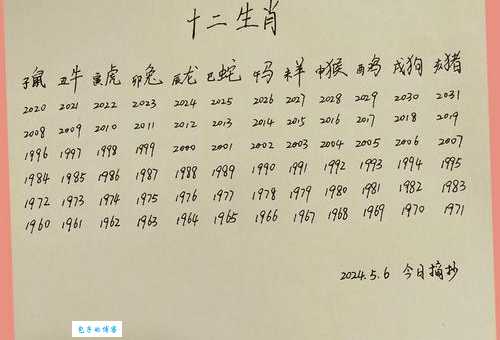 十二生肖
子鼠 丑牛 寅虎 卯兔 辰龙 巳蛇 午马 未羊 申猴 酉鸡 戌狗 亥猪
2020 2021 2022 2023 2024 2025 2026 2027 2028 2029 2030 2031
2008 2009 2010 2011 2012 2013 2014 2015 2016 2017 2018 2019
1996 1997 1998 1999 2000 2001 2002 2003 2004 2005 2006 2007
1984 1985 1986 1987 1988 1989 1990 1991 1992 1993 1994 1995
1972 1973 1974 1975 1976 1977 1978 1979 1980 1981 1982 1983
1960 1961 1962 1963 1964 1965 1966 1967 1968 1969 1970 1971
2024.5.6 今日摘抄
包子的博客